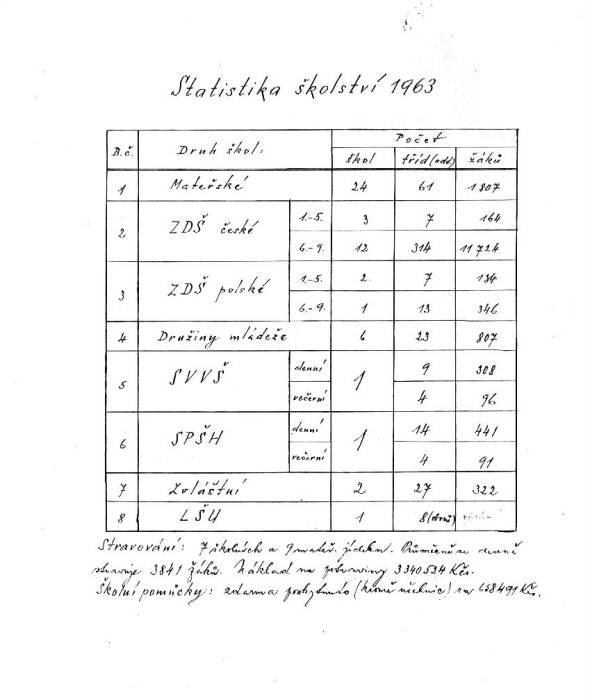 Statistika školství 1963
B.č. Druh škol: Počet
škol tříd (odd) žáků
1 Mateřské 24 61 1807
2 ZDŠ české 1.-5. 3 7 164
6.-9. 12 314 11724
3 ZDŠ polské 1.-5. 2 7 134
6.-9. 1 13 346
4 Družiny mládeže 6 23 807
5 SVVŠ denní 1 9 308
večerní 4 96
6 SPŠH denní 1 14 441
večerní 4 91
7 Zvláštní 2 27 322
8 LŠU 1 8
Stravování: 7 školních a 9 mateř. jídelen. Průměrně se denně
stravuje 3841 žáků. Náklad na potraviny 3340534 Kčs.
Školní pomůcky: zdarma poskytnuto (kromě učebnic) za 658491 Kčs.